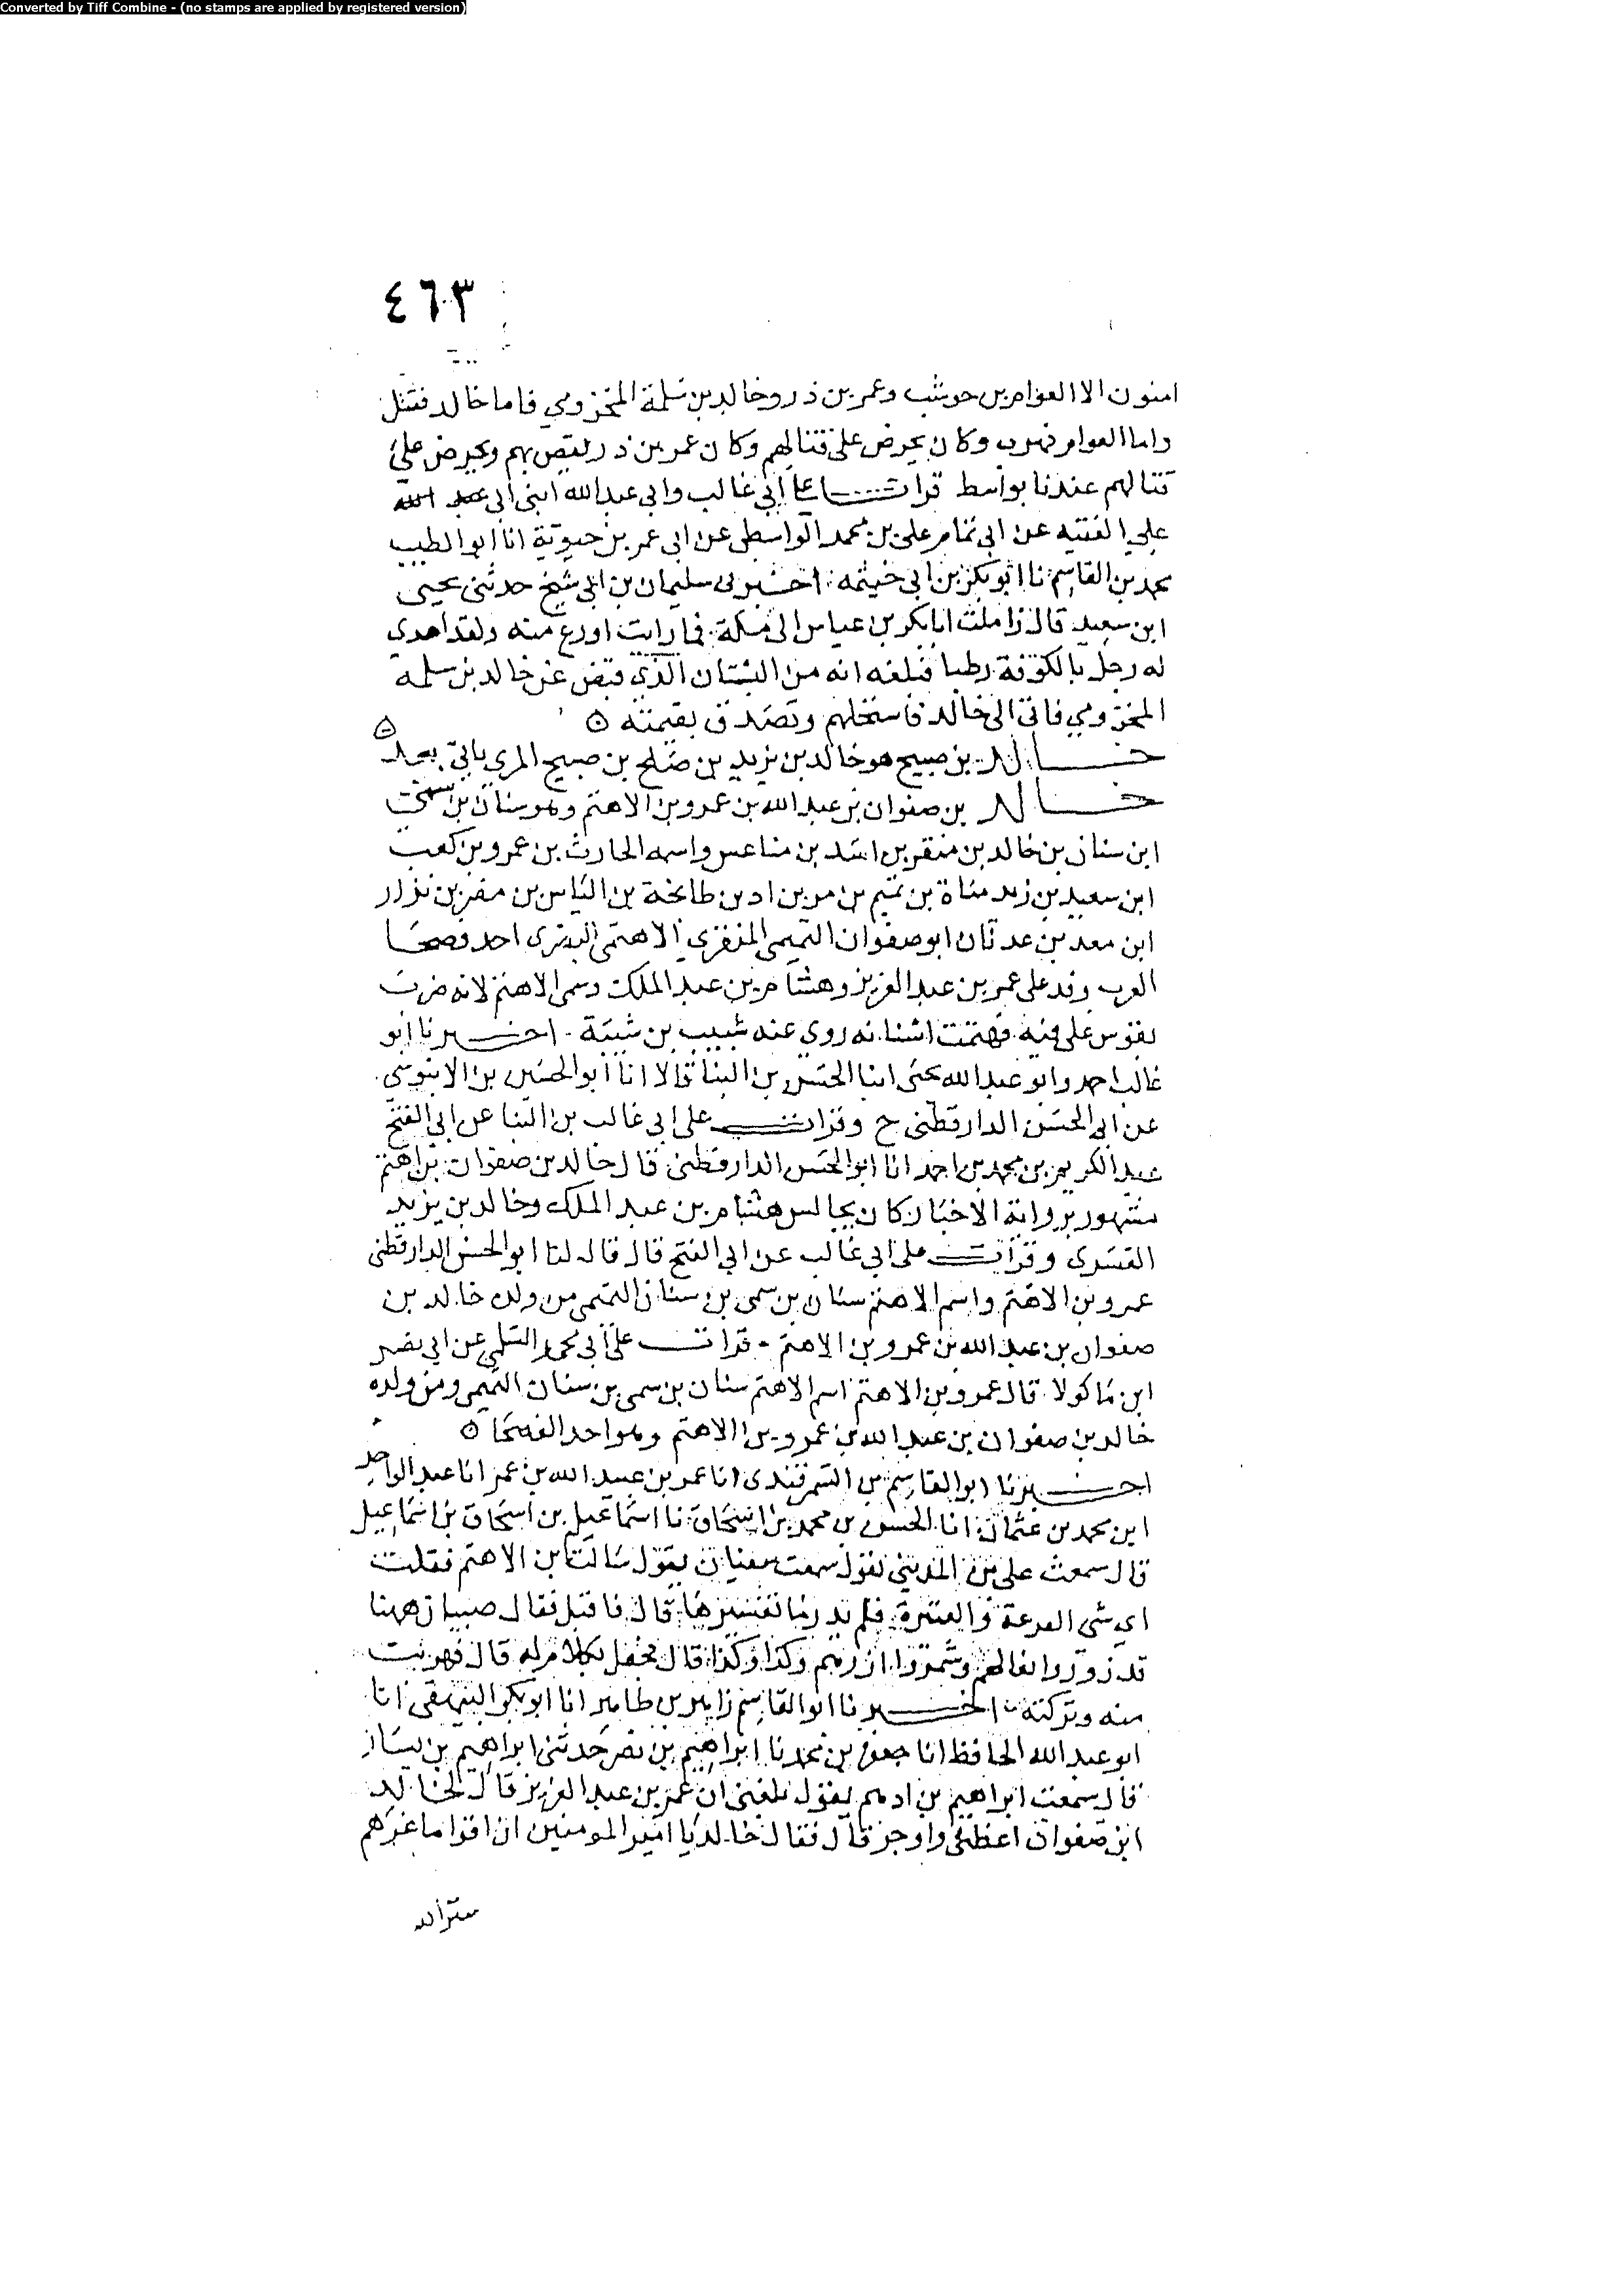 Converted by Tiff Combine - (no stamps are applied by registered version)
٤٦٣
امنون الا العوام بن حوشب وعمر بن ذر وخالد بن سلمة المخزومي فاما خالد فقتل
واما العوام فهرب وكان يحرض على قتالهم وكان عمر بن ذر يقص بهم ويحرض على
قتالهم عندنا بواسط قرات على ابي غالب وابي عبد الله ابني ابي عبد الله
على الفقيه عن ابي تمام علي بن محمد الواسطي عن ابي عمر بن حيوية انا ابو الطيب
محمد بن القاسم نا ابو بكر بن ابي خيثمه اخبرني سليمان بن ابي شيخ حدثني يحيى
ابن سعيد قال زاملت ابا بكر بن عياس الى مكة فما رايت اورع منه ولقد اهدي
له رجل بالكوفة رطبا فبلغه انه من البستان الذي قبض عن خالد بن سلمة
المخزومي فاتى الى خالد فاستحلهم وتصدق بقيمته
خالد بن صبيح هو خالد بن يزيد بن صلح بن صبيح المري ياتي بعد
خالد بن صفوان بن عبد الله بن عمرو بن الاهتم وهو سنان بن سمي
ابن سنان بن خالد بن منقر بن اسد بن مقاعس واسمه الحارث بن عمرو بن كعب
ابن سعيد بن زيد مناة بن تميم بن مر بن اد بن طابخة بن الياس بن مضر بن نزار
ابن معد بن عدنان ابو صفوان التميمي المنقري الاهتمي البصري احد فصحا
العرب وفد على عمر بن عبد العزيز وهشام بن عبد الملك وسمي الاهتم لانه ضرب
بقوس على فيه فهتمت اسنانه روى عنه شبيب بن شيبة اخبرنا ابو
غالب احمد وابو عبد الله يحيى ابنا الحسن بن البنا قالا انا ابو الحسين بن الابنوسي
عن ابي الحسن الدارقطني ح وقرات على ابي غالب بن البنا عن ابي الفتح
عبد الكريم بن محمد بن احمد انا ابو الحسن الدارقطني قال خالد بن صفوان بن اهتم
مشهور برواية الاخبار كان يجالس هشام بن عبد الملك وخالد بن يزيد
القسري وقرات على ابي غالب عن ابي الفتح قال قال لنا ابو الحسن الدارقطني
عمرو بن الاهتم واسم الاهتم سنان بن سمي بن سنان التميمي من ولده خالد بن
صفوان بن عبد الله بن عمرو بن الاهتم قرات على ابي محمد السلمي عن ابي نصر
ابن ماكولا قال عمرو بن الاهتم اسم الاهتم سنان بن سمي بن سنان التميمي ومن ولده
خالد بن صفوان بن عبد الله بن عمرو بن الاهتم وهو احد الفصحا
اخبرنا ابو القاسم بن السمرقندي انا عمر بن عبيد الله بن عمر انا عبد الواحد
ابن محمد بن عثمان انا الحسن بن محمد بن اسحاق نا اسماعيل بن اسحاق بن اسماعيل
قال سمعت علي بن المديني يقول سمعت سفيان يقول سالت ابن الاهتم فقلت
اي شي الفرعة والعتيرة فلم يدر ما تفسيرها قال فاقبل فقال صبيان ههنا
قد زوروا نعالهم وشمروا ازرهم وكذا وكذا قال بكلام له قال فهربت
منه وتركته اخبرنا ابو القاسم زاهر بن طاهر انا ابو بكر البيهقي انا
ابو عبد الله الحافظ انا جعفر بن محمد نا ابراهيم بن نصر حدثني ابراهيم بن بسار
قال سمعت ابراهيم بن ادهم يقول بلغني ان عمر بن عبد العزيز قال لخالد
ابن صفوان اعظني واوجز قال فقال خالد يا امير المومنين ان اقواما غرهم
ستر الله